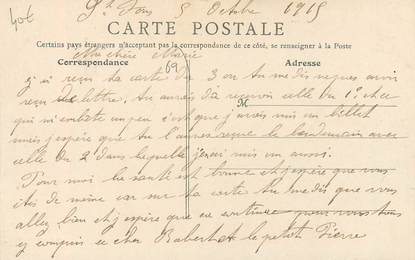 40€
St Fons 5 Octobre 1915
CARTE POSTALE
Certains pays étrangers n'acceptant pas la correspondance de ce côté, se renseigner à la Poste
Ma chère Marie
Correspondance
Adresse
69
j'ai reçu ta carte du 3 ou tu me dis ne pas avoir
reçu de lettre, tu aurais dû recevoir celle du 1er
M
qui m'embête un peu c'est que j'avais mis un billet
mais j'espère que tu l'auras reçue le lendemain avec
celle du 2 dans laquelle j'en ai mis un aussi.
Pour moi la santé est bonne et j'espère que vous
êtes de même car sur ta carte tu me dis que vous
allez bien et j'espère que ca continue pour vous tous
y compris ce cher Robert et le petit Pierre